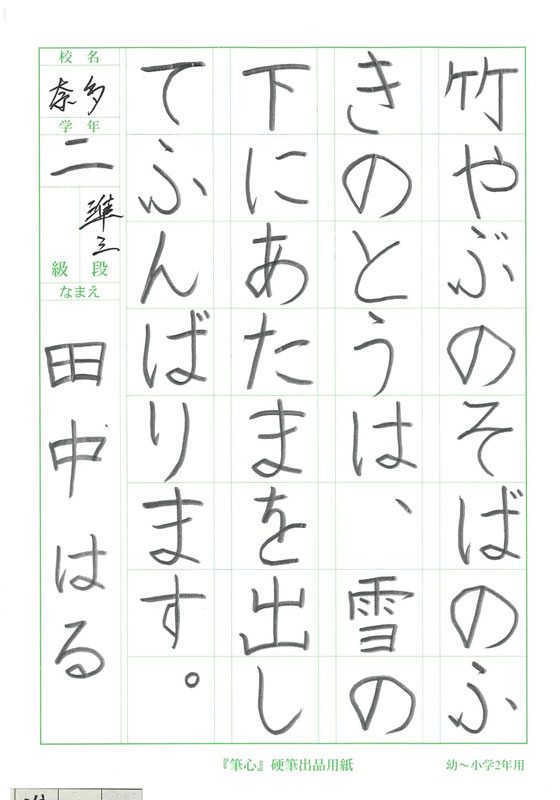 竹やぶのそばのふ
きのとうは、雪の
下にあたまを出し
てふんばります。
校名
奈多
学年
二
級段
準三
なまえ
田中はる
『筆心』硬筆出品用紙
幼～小学2年用